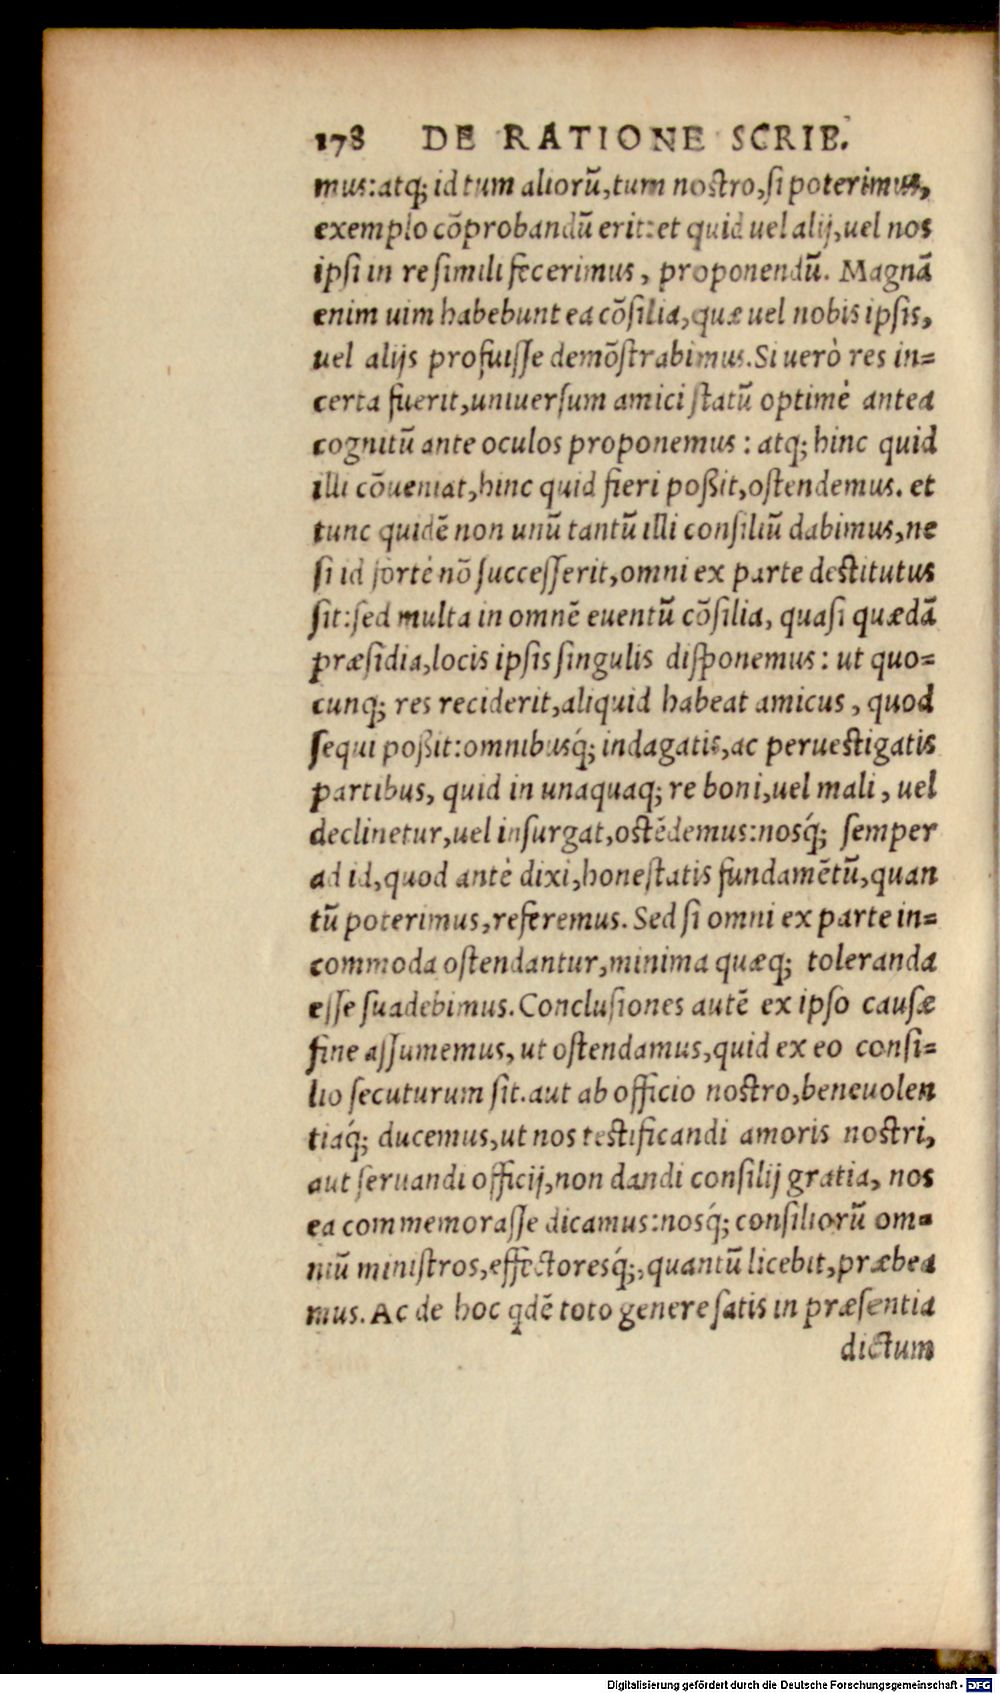 178 DE RATIONE SCRIB.
mus:atq; id tum aliorũ,tum nostro,si poterimus,
exemplo cõprobandũ erit:et quid uel alij,uel nos
ipsi in re simili fecerimus, proponendũ. Magnã
enim uim habebunt ea cõsilia,quæ uel nobis ipsis,
uel alijs profuisse demõstrabimus.Si uerò res in=
certa fuerit,uniuersum amici statũ optimè antea
cognitũ ante oculos proponemus: atq; hinc quid
illi cõueniat,hinc quid fieri poßit,ostendemus. et
tunc quidẽ non unũ tantũ illi consiliũ dabimus,ne
si id fortè nõ successerit,omni ex parte destitutus
sit:sed multa in omnẽ euentũ cõsilia, quasi quædã
præsidia,locis ipsis singulis disponemus: ut quo=
cunq; res reciderit,aliquid habeat amicus, quod
sequi poßit:omnibusq́; indagatis,ac peruestigatis
partibus, quid in unaquaq; re boni,uel mali, uel
declinetur,uel insurgat,ostẽdemus:nosq́; semper
ad id,quod antè dixi,honestatis fundamẽtũ,quan
tũ poterimus,referemus. Sed si omni ex parte in=
commoda ostendantur,minima quæq; toleranda
esse suadebimus. Conclusiones autẽ ex ipso causæ
fine assumemus, ut ostendamus,quid ex eo consi=
lio secuturum sit. aut ab officio nostro,beneuolen
tiaq́; ducemus,ut nos testificandi amoris nostri,
aut seruandi officij,non dandi consilij gratia, nos
ea commemorasse dicamus:nosq́; consiliorũ om=
niũ ministros,effectoresq́;,quantũ licebit,præbea
mus. Ac de hoc qdẽ toto genere satis in præsentia
dictum
Digitalisierung gefördert durch die Deutsche Forschungsgemeinschaft - DFG